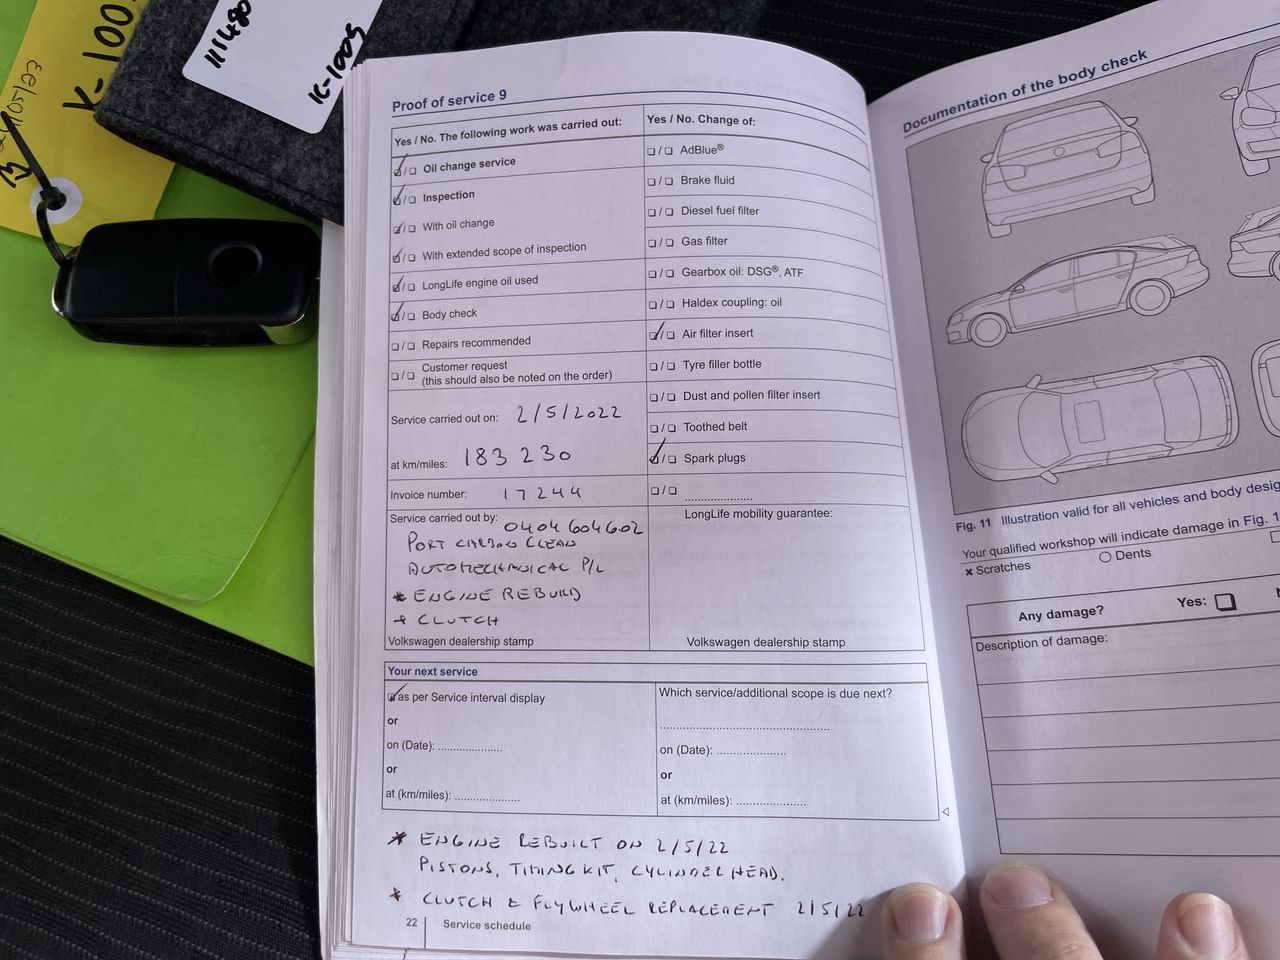 111480
K-1005
K-1005
Proof of service 9
Yes / No. The following work was carried out:
☑/☐ Oil change service
☑/☐ Inspection
☑/☐ With oil change
☑/☐ With extended scope of inspection
☑/☐ LongLife engine oil used
☑/☐ Body check
☐/☐ Repairs recommended
☐/☐ Customer request
(this should also be noted on the order)
Service carried out on: 2/5/2022
at km/miles: 183 230
Invoice number: 17244
Service carried out by: 0404604602
PORT CARBON CLEAN
AUTOMECHANICAL P/L
* ENGINE REBUILD
+ CLUTCH
Volkswagen dealership stamp
Yes / No. Change of:
☐/☐ AdBlue®
☐/☐ Brake fluid
☐/☐ Diesel fuel filter
☐/☐ Gas filter
☐/☐ Gearbox oil: DSG®, ATF
☐/☐ Haldex coupling: oil
☑/☐ Air filter insert
☐/☐ Tyre filler bottle
☐/☐ Dust and pollen filter insert
☐/☐ Toothed belt
☑/☐ Spark plugs
☐/☐ ....................
LongLife mobility guarantee:
Volkswagen dealership stamp
Your next service
☑ as per Service interval display
or
on (Date): ...................
or
at (km/miles): ...................
Which service/additional scope is due next?
..................................................
on (Date): ....................
or
at (km/miles): ....................
* ENGINE REBUILT ON 2/5/22
PISTONS, TIMING KIT, CYLINDER HEAD.
* CLUTCH & FLYWHEEL REPLACEMENT 2/5/22
22 Service schedule
Documentation of the body check
Fig. 11 Illustration valid for all vehicles and body
Your qualified workshop will indicate damage in Fig.
× Scratches ○ Dents
Any damage? Yes: ☐
Description of damage: